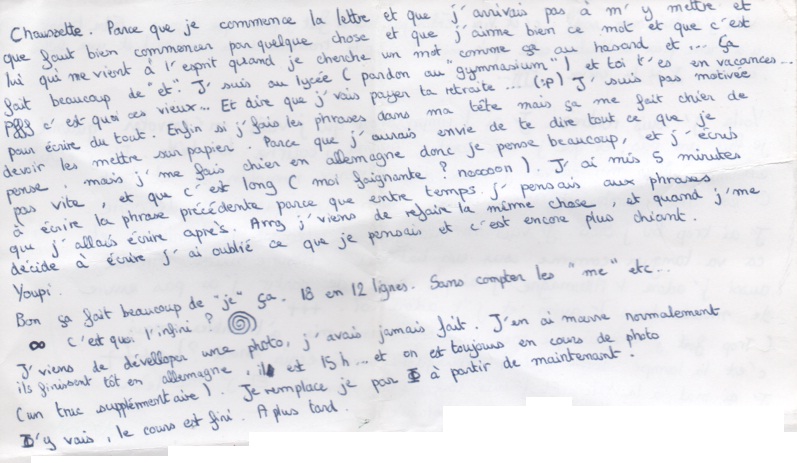 Chaussette. Parce que je commence la lettre et que j'arrivais pas à m'y mettre et
que faut bien commencer par quelque chose et que j'aime bien ce mot et que c'est
lui qui me vient à l'esprit quand je cherche un mot comme ça au hasard et... Ça
fait beaucoup de "et". J'suis au lycée (pardon au "gymnasium") et toi t'es en vacances...
Pfff c'est quoi ces vieux... Et dire que j'vais payer ta retraite... (:p) J'suis pas motivée
pour écrire du tout. Enfin si j'fais les phrases dans ma tête mais ça me fait chier de
devoir les mettre sur papier. Parce que j'aurais envie de te dire tout ce que je
pense, mais j'me fais chier en allemagne donc je pense beaucoup, et j'écris
pas vite, et que c'est long (moi faignante ? nooooon). J'ai mis 5 minutes
à écrire la phrase précédente parce que entre temps j'pensais aux phrases
que j'allais écrire après. Arrg j'viens de refaire la même chose, et quand j'me
décide à écrire j'ai oublié ce que je pensais et c'est encore plus chiant.
Youpi.
Bon ça fait beaucoup de "je" ça. 18 en 12 lignes. Sans compter les "me" etc...
∞ c'est quoi l'infini ?
J'viens de développer une photo, j'avais jamais fait. J'en ai marre normalement
ils finissent tôt en allemagne, il est 15h... et on est toujours en cours de photo
(un truc supplémentaire). Je remplace je par Φ à partir de maintenant.
Φ'y vais, le cours est fini. A plus tard.